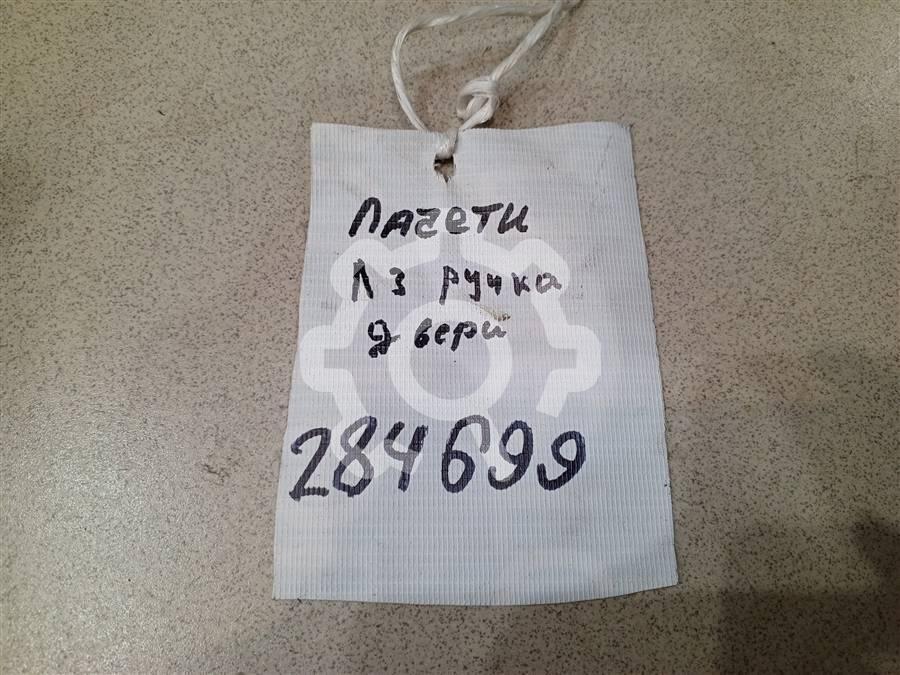 Лачети
Л З ручка
двери
284699